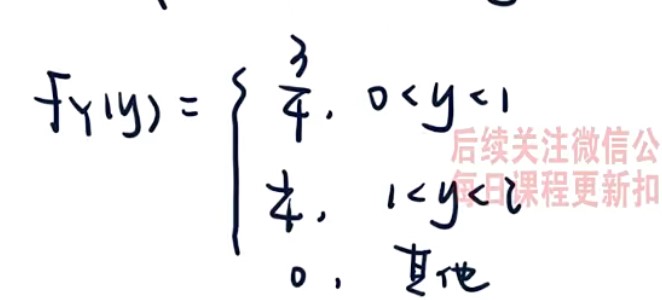 f_Y(y) = { 3/4, 0<y<1
1/4, 1<y<2
0, 其他
后续关注微信公
每日课程更新扣